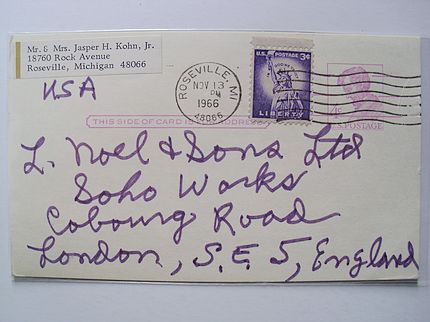 Mr. & Mrs. Jasper H. Kohn, Jr.
18760 Rock Avenue
Roseville, Michigan 48066
USA
ROSEVILLE, MI
NOV 13
PM
1966
48066
U.S. POSTAGE 3¢
LIBERTY
4¢
U.S. POSTAGE
THIS SIDE OF CARD IS FOR ADDRESS
L. Noel & Sons Ltd
Soho Works
Cobourg Road
London, S.E. 5, England